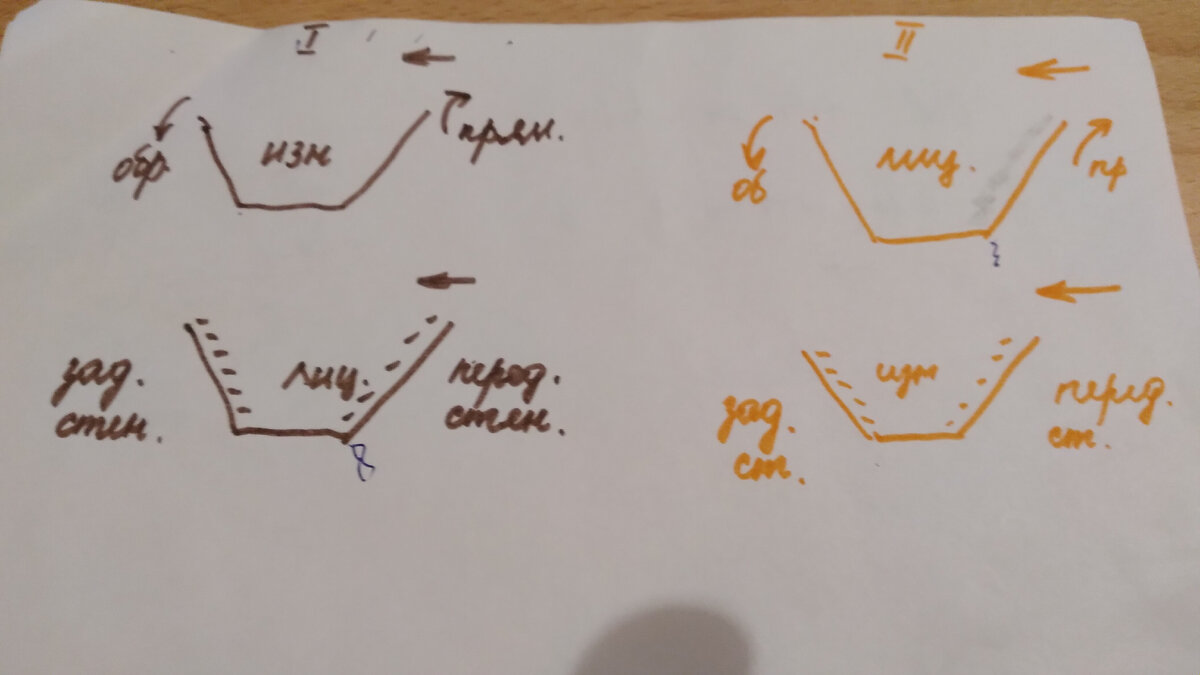 I
обр.
изн
прям.
зад.
стен.
лиц.
перед.
стен.
II
об
лиц.
пр
зад.
ст.
изн
перед.
ст.